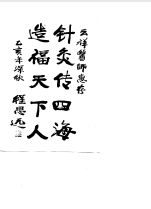 云祥醫师惠存
针灸传四海
造福天下人
乙亥年深秋
程思远